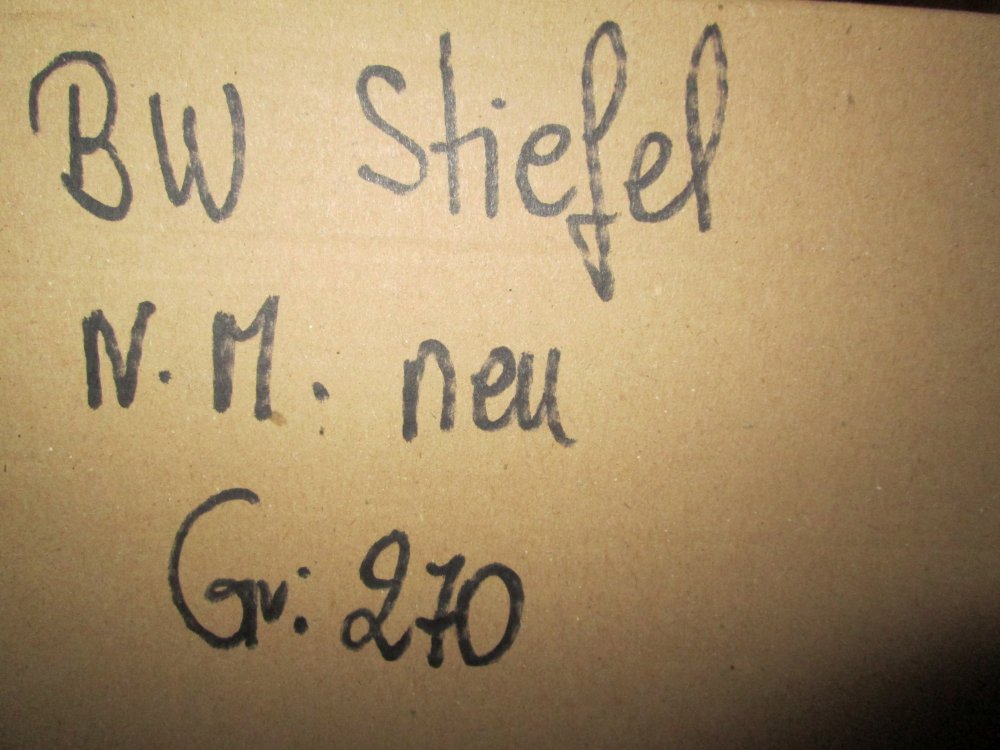 BW Stiefel
N.M. neu
Gr: 270